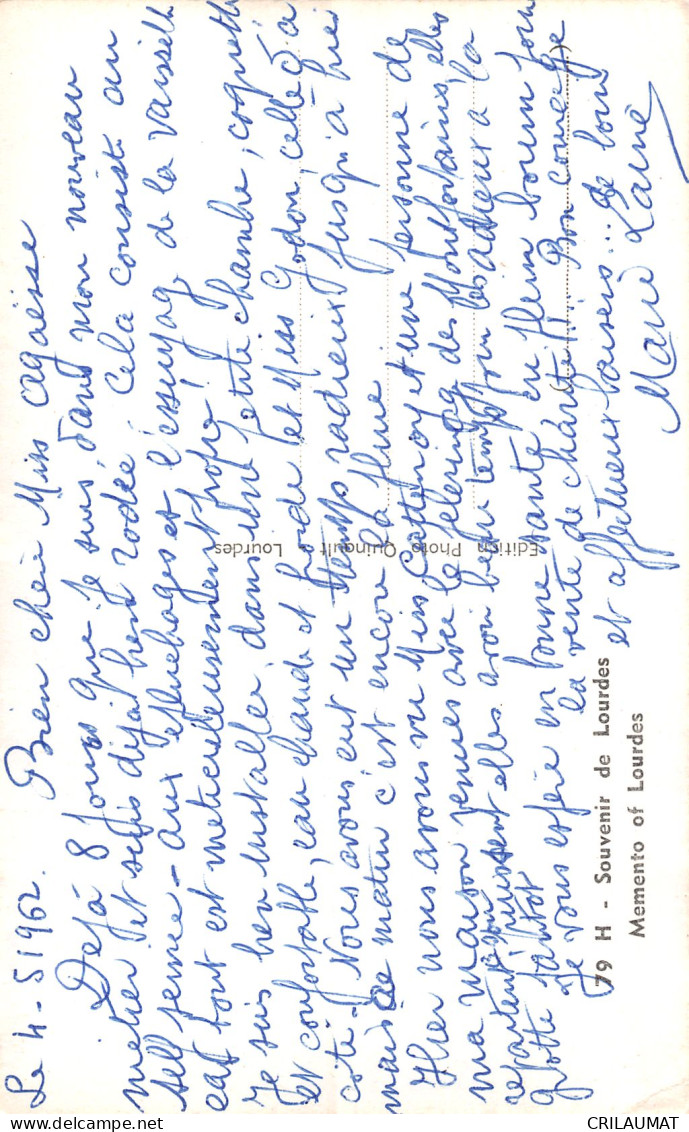 Le 4-5 1962. Bien chère Miss Agaësse
Déjà 8 jours que je suis dans mon nouveau
métier et suis déjà bien rodée. Cela consiste au
self service - aux épluchages et l'essuyage de la vaisselle
car tout est méticuleusement propre !
Je suis bien installée dans une petite chambre, coquette
et confortable, eau chaude et froide et Miss Godon, celle d'à
côté. Nous avons eut un temps radieux jusqu'à hier
mais ce matin c'est encore la pluie
Hier nous avons vu Miss et une personne de
ma maison venues avec le pèlerinage des Montfortains, elles
repartent aujourd'hui elles avoir beau temps pour les adieux à la
grotte tantôt
Je vous espère en bonne santé en pleine bourre pour
la vente de charité !! Bon courage
et affectueux baisers... de loin
Marie Laure
Edition Photo Quinault - Lourdes
79 H - Souvenir de Lourdes
Memento of Lourdes
CRILAUMAT